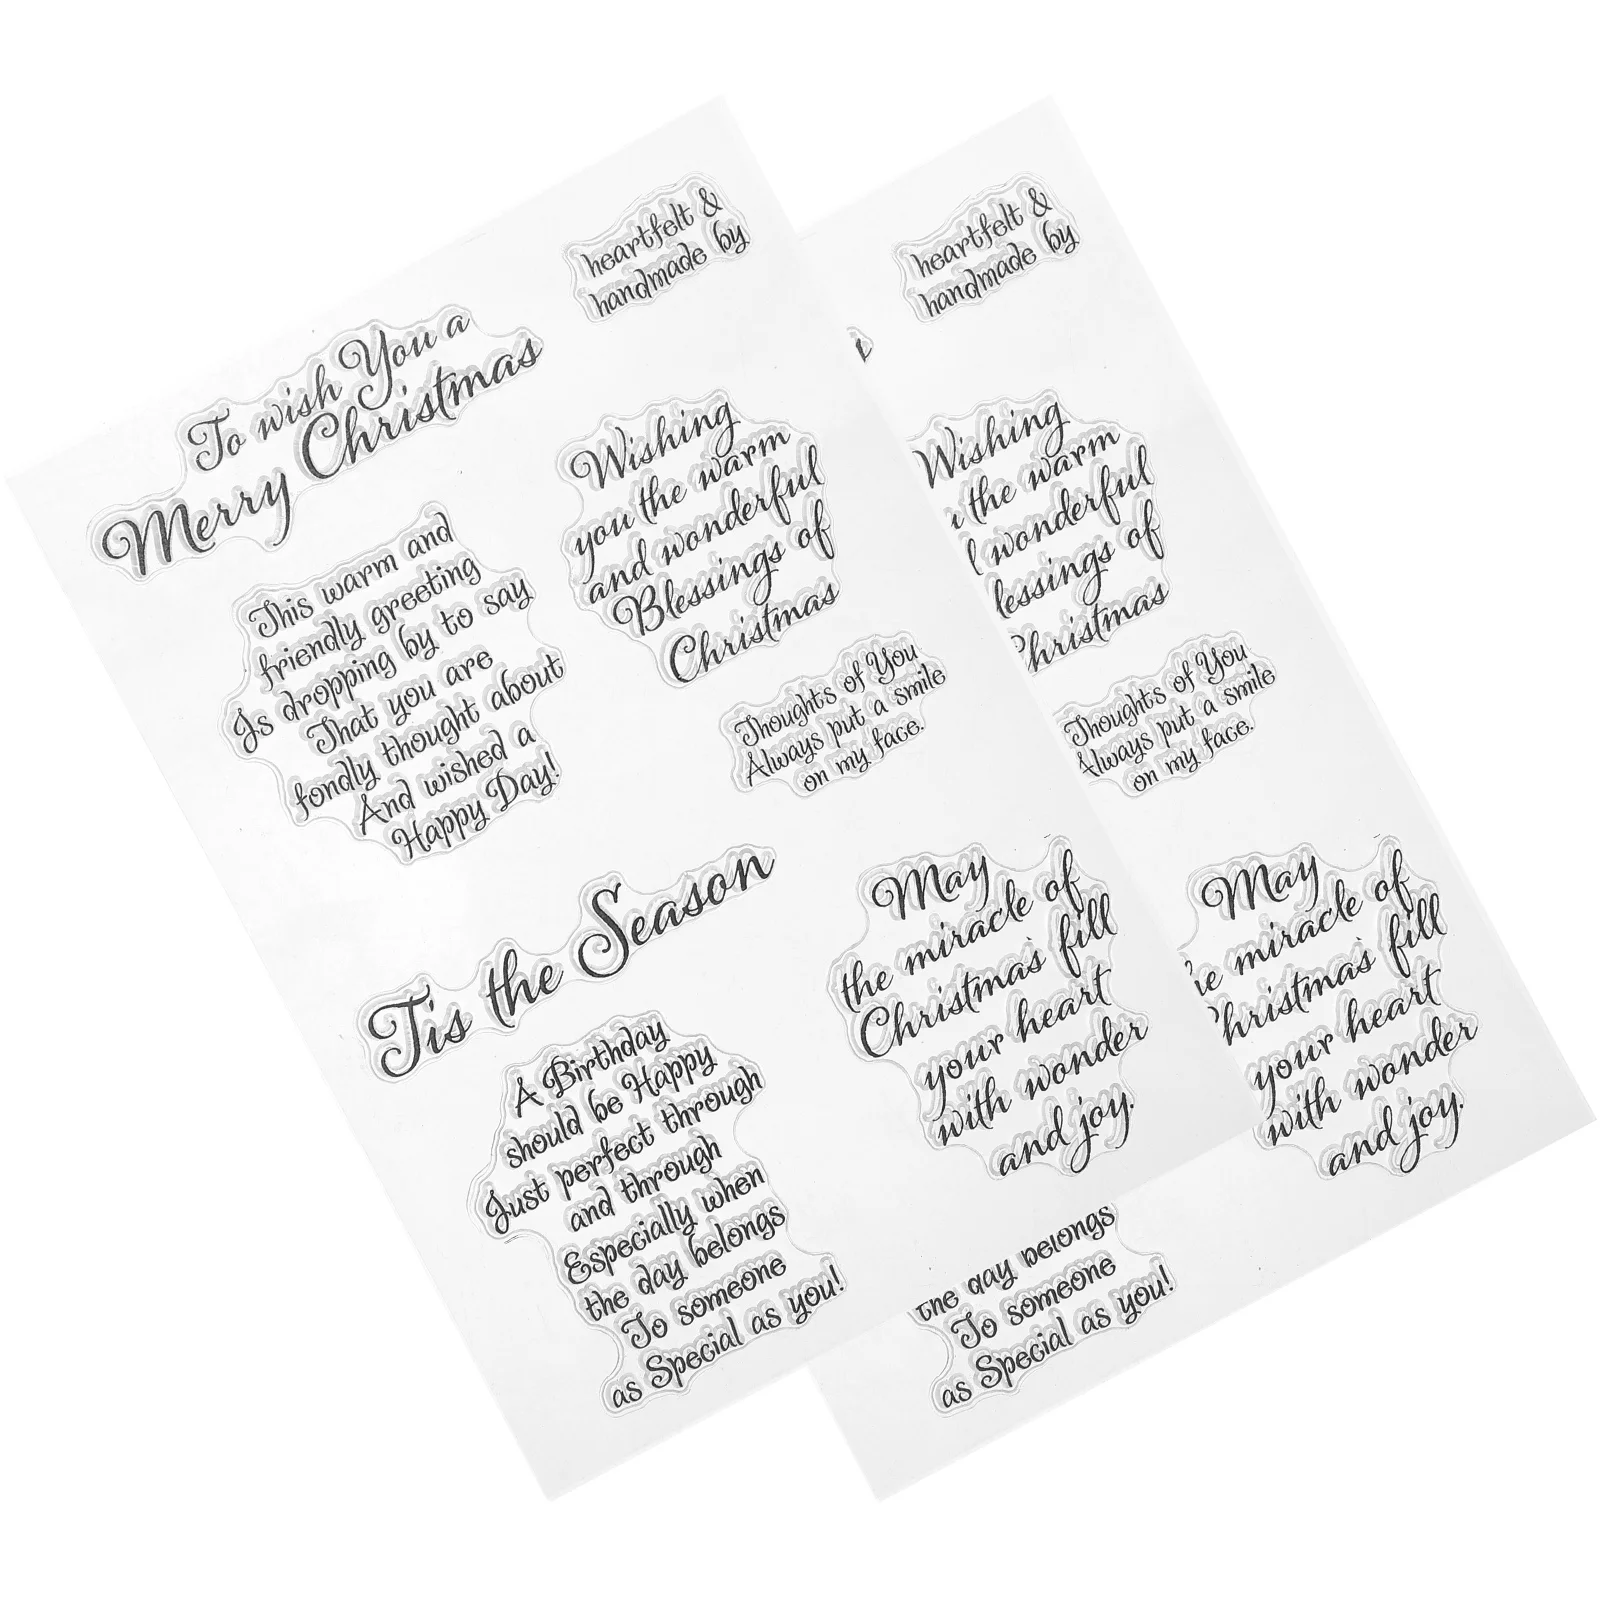 heartfelt &
handmade by
To wish You a
Merry Christmas
Wishing
you the warm
and wonderful
Blessings of
Christmas
This warm and
friendly greeting
Is dropping by to say
That you are
fondly thought about
And wished a
Happy Day!
Thoughts of You
Always put a smile
on my face.
'Tis the Season
May
the miracle of
Christmas fill
your heart
with wonder
and joy.
A Birthday
should be Happy
Just perfect through
and through
Especially when
the day belongs
To someone
as Special as you!
heartfelt &
handmade by
Wishing
the warm
wonderful
lessings of
Christmas
Thoughts of You
Always put a smile
on my face.
May
miracle of
Christmas fill
your heart
with wonder
and joy.
the day belongs
To someone
as Special as you!